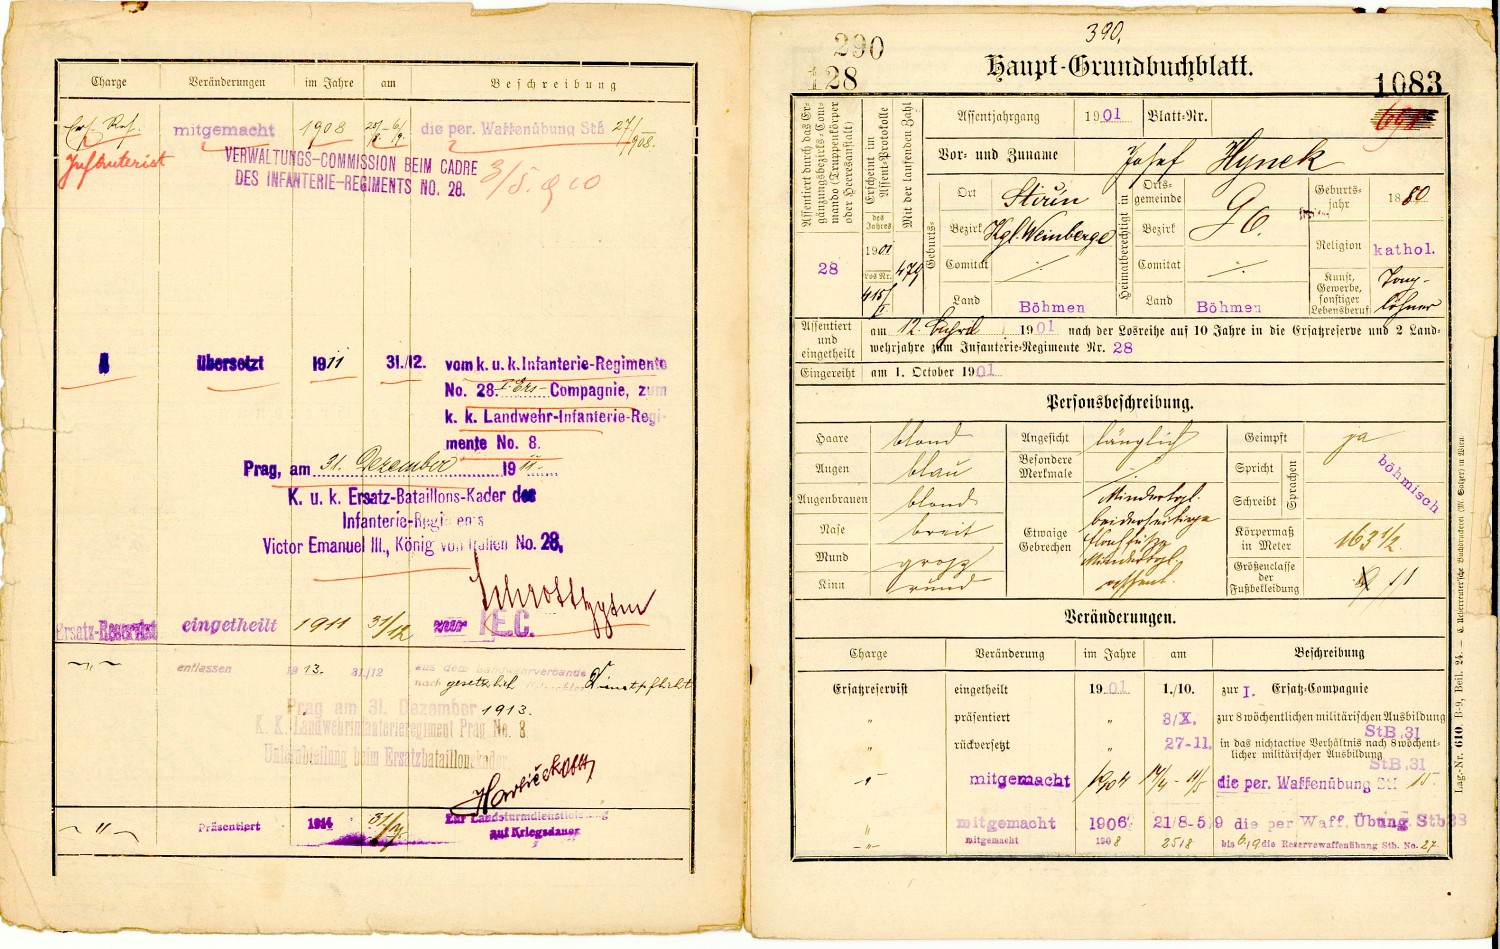 Charge Veränderungen im Jahre am Beschreibung
Ers. Res. mitgemacht 1908 25/8.-6/9. die per. Waffenübung Stb 27/908.
Infanterist
VERWALTUNGS-COMMISSION BEIM CADRE
DES INFANTERIE-REGIMENTS NO. 28. 3/5. 910
übersetzt 1911 31./12. vom k. u. k. Infanterie-Regimente
No. 28. I. Ers- Compagnie, zum
k. k. Landwehr-Infanterie-Regi-
mente No. 8.
Prag, am 31. Dezember 1911.
K. u. k. Ersatz-Bataillons-Kader des
Infanterie-Regiments
Victor Emanuel III., König von Italien No. 28,
Ersatz-Reservist eingetheilt 1911 31/12 zur I E.C.
~"~ entlassen 1913. 31/12 aus dem Landwehrverbande
nach gesetzlich Dienstpflicht
Prag am 31. Dezember 1913.
K. K. Landwehrinfanterieregiment Prag No. 8.
Unterabteilung beim Ersatzbataillonskader
~"~ Präsentiert 1914 Zur Landsturmdienstleistung
auf Kriegsdauer
390.
290
128
Haupt-Grundbuchblatt.
1083
Assentiert durch das Er-
gänzungsbezirks-Com-
mando (Truppenkörper
oder Heeresanstalt)
28
Erscheint im
Assent-Protokolle
des
Jahres
1901
Los Nr.
415/II
Mit der laufenden Zahl
479
Assentjahrgang 1901 Blatt-Nr.
Vor- und Zuname Josef Hynek
Geburts-
Ort Stirin
Bezirk Kgl. Weinberge
Comitat ./.
Land Böhmen
Heimatberechtigt in
Orts-
gemeinde
Bezirk
Comitat ./.
Land Böhmen
Geburts-
jahr 1880
Religion kathol.
Kunst,
Gewerbe,
sonstiger
Lebensberuf
Tag-
löhner
Assentiert
und
eingetheilt
am 12. April 1901 nach der Losreihe auf 10 Jahre in die Ersatzreserve und 2 Land-
wehrjahre zum Infanterie-Regimente Nr. 28
Eingereiht am 1. October 1901
Personsbeschreibung.
Haare blond
Augen blau
Augenbrauen blond
Nase breit
Mund gross
Kinn rund
Angesicht länglich
Besondere
Merkmale ./.
Etwaige
Gebrechen
Mindertgl.
beiderseitiger
Mindertgl.
Geimpft ja
Spricht
Schreibt
Sprachen
böhmisch
Körpermaß
in Meter 163 1/2.
Größenclasse
der
Fußbekleidung 11
Veränderungen.
Charge Veränderung im Jahre am Beschreibung
Ersatzreservist eingetheilt 1901 1./10. zur I. Ersatz-Compagnie
" präsentiert " 3/X. zur 8 wöchentlichen militärischen Ausbildung
StB.31
" rückversetzt " 27-11. in das nichtactive Verhältnis nach 8 wöchent-
licher militärischer Ausbildung
StB.31
-"- mitgemacht 1904 14/4 - 11/5 die per. Waffenübung Stb 15
" mitgemacht 1906 21/8-5/9 die per Waff. Übung. Stb 38
-"- mitgemacht 1908 25/8 bis 6/9 die Reservewaffenübung Stb. No. 27
Lag.-Nr. 610. B-9, Beil. 24. — C. Ueberreuter'sche Buchdruckerei (M. Salzer) in Wien.